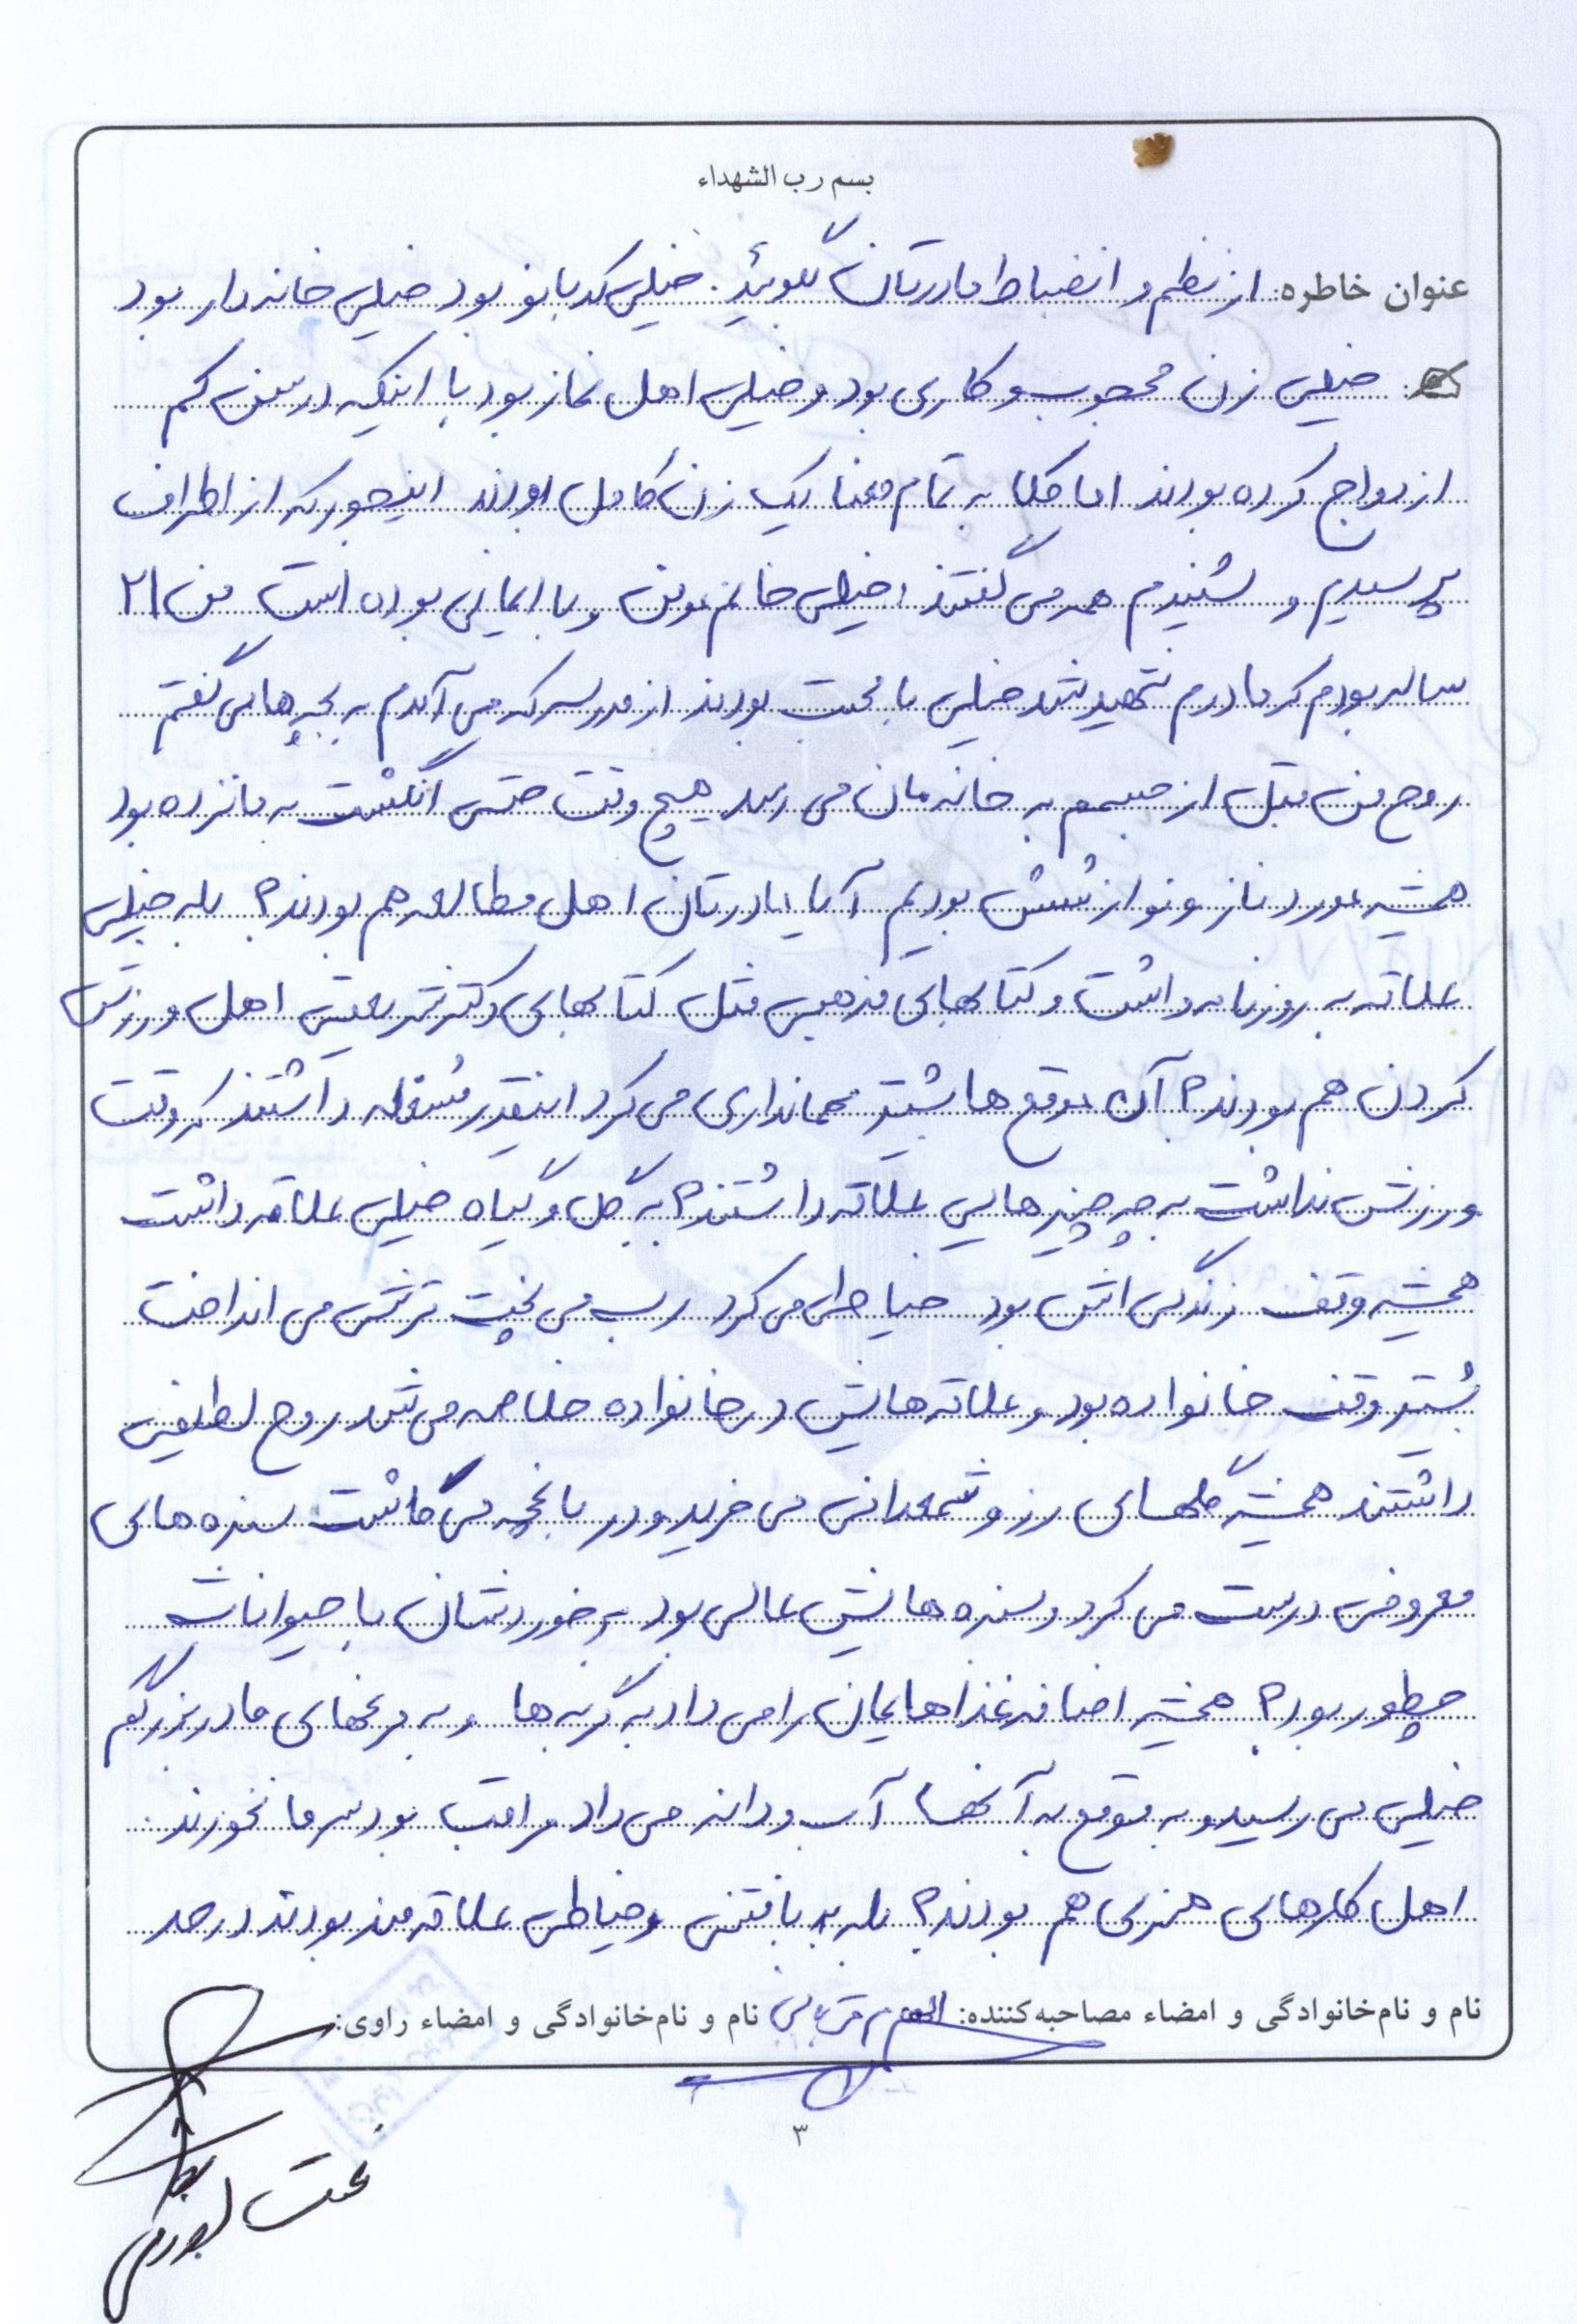 بسم رب الشهداء
عنوان خاطره: از نظم و انضباط مادرتان بگوئید. خیلی کدبانو بود خیلی خانه دار بود
خیلی زن محجوب و کاری بود و خیلی اهل نماز بود با اینکه در سن کم
ازدواج کرده بودند اما کلا به تمام معنا یک زن کامل بودند اینجور که از اطراف
پرسیدیم و شنیدم همه می گفتند خیلی خانم مومن و با ایمانی بوده است من ۲۱
ساله بودم که مادرم شهید شد خیلی با محبت بودند از مدرسه که می آمدم به بچه هامی گفتم
روح من قبل از جسمم به خانه مان می رسد هیچ وقت حتی انگشت به ما نزده بود
همیشه مورد ناز و نوازشش بودیم آیا مادرتان اهل مطالعه هم بودند؟ بله خیلی
علاقه به روزنامه داشت و کتابهای مذهبی مثل کتابهای دکتر شریعتی اهل ورزش
کردن هم بودند؟ آن موقع ها بیشتر مهمانداری می کرد اینقدر مشغله داشتند که وقت
ورزش نداشت به چه چیزهایی علاقه داشتند؟ به گل و گیاه خیلی علاقه داشت
همیشه وقف زندگی اش بود خیاطی می کرد رب می پخت ترشی می انداخت
بیشتر وقف خانواده بود و علاقه هایش در خانواده خلاصه می شد روح لطیفی
داشتند همیشه گلهای رز و شمعدانی می خرید و در باغچه می کاشت سبزه های
معروفی درست می کرد و سبزه هایش عالی بود برخوردشان با حیوانات
چطور بود؟ همیشه اضافه غذاهایمان را می داد به گربه ها و به مرغهای مادربزرگم
خیلی می رسید و به موقع به آنها آب و دانه می داد مراقب بود سرما نخورند.
اهل کارهای هنری هم بودند؟ بله به بافتنی و خیاطی علاقه مند بودند در حد
نام و نام‌خانوادگی و امضاء مصاحبه‌کننده: نام و نام‌خانوادگی و امضاء راوی:
۳